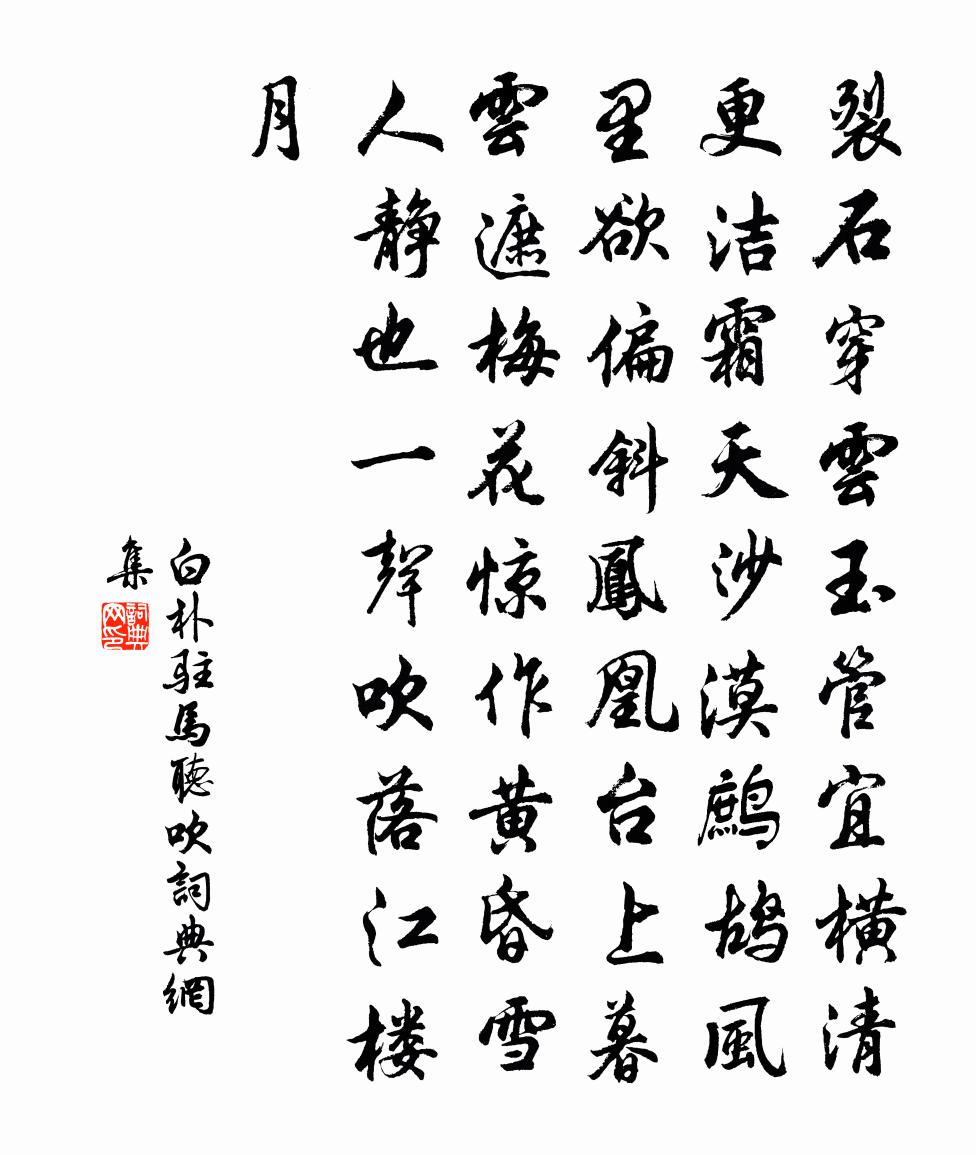 裂石穿雲玉管宜橫清
更洁霜天沙漠鷓鴣風
里欲偏斜鳳凰台上暮
雲遮梅花惊作黄昏雪
人静也一聲吹落江楼
月
白朴駐馬聽吹詞典網
集
詞典网印